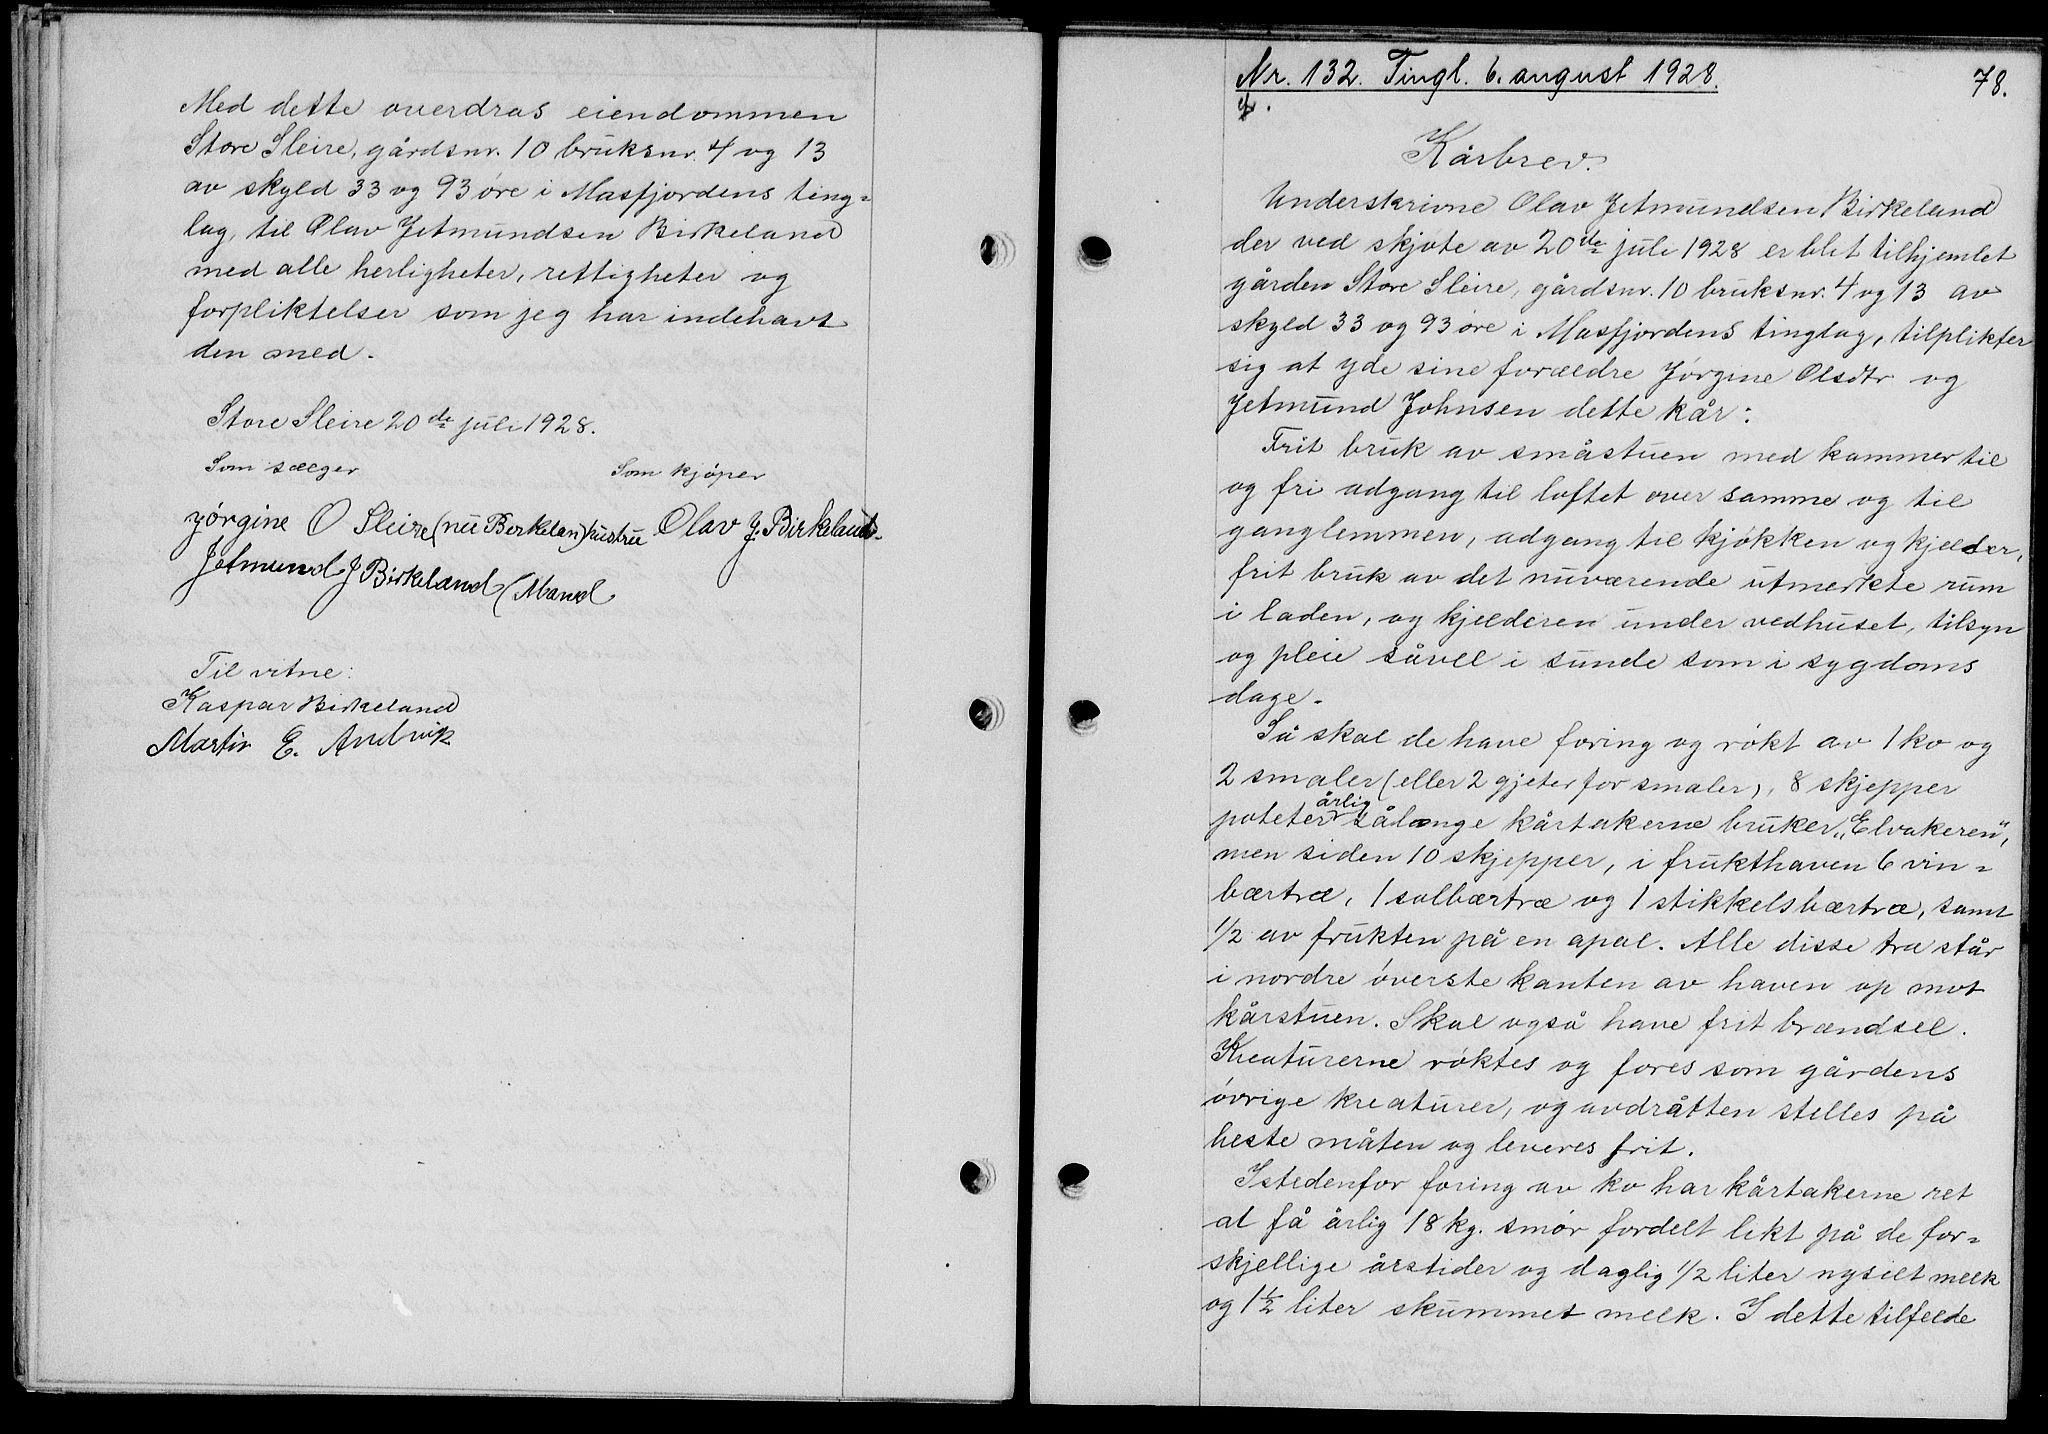 Med dette overdras eiendommen
Store Sleire, gårdsnr. 10 bruksnr. 4 og 13
av skyld 33 og 93 öre i Masfjordens ting=
lag, til Olav Jetmundsen Birkeland
med alle herligheter, rettigheter og
forpliktelser som jeg har indehavt
den med.
Store Sleire 20de juli 1928.
Som sælger
Som kjöper
Jörgine O Sleire (nu Berkelan) hustru
Olav J. Birkeland.
Jetmund J Birkeland (Mand
Til vitne:
Kaspar Birkeland
Martin E. Andvik
Nr. 132. Tingl. 6. august 1928.
78.
Kårbrev.
Underskrivne Olav Jetmundsen Birkeland
der ved skjöte av 20de juli 1928 er blit tilhjemlet
gården Store Sleire, gårdsnr. 10 bruksnr. 4 og 13 av
skyld 33 og 93 öre i Masfjordens tinglag, tilplikter
sig at yde sine forældre Jörgine Olsdtr og
Jetmund Johnsen dette kår:
Frit bruk av småstuen med kammer til
og fri adgang til loftet over samme og til
ganglemmen, adgang til kjökken og kjelder,
frit bruk av det nuværende utmerkte rum
i laden, og kjelderen under vedhuset, tilsyn
og pleie såvel i sunde som i sygdoms
dage.
Så skal de have foring og rökt av 1 ko og
2 smaler (eller 2 gjeter for smaler), 8 skjepper
poteter årlig sålænge kårtakerne bruker "Elvakeren",
men siden 10 skjepper, i frukthaven 6 vin=
bærtræ, 1 solbærtræ og 1 stikkelsbærtræ, samt
1/2 av frukten på en apal. Alle disse træ står
i nordre överste kanten av haven op mot
kårstuen. Skal også have frit brændsel.
Kreaturerne röktes og fores som gårdens
övrige kreaturer, og avdråtten stelles på
beste måten og leveres frit.
Istedenfor foring av ko har kårtakerne ret
at få årlig 18 kg. smör fordelt likt på de for=
skjellige årstider og daglig 1/2 liter nysilt melk
og 1 1/2 liter skummet melk. I dette tilfelde